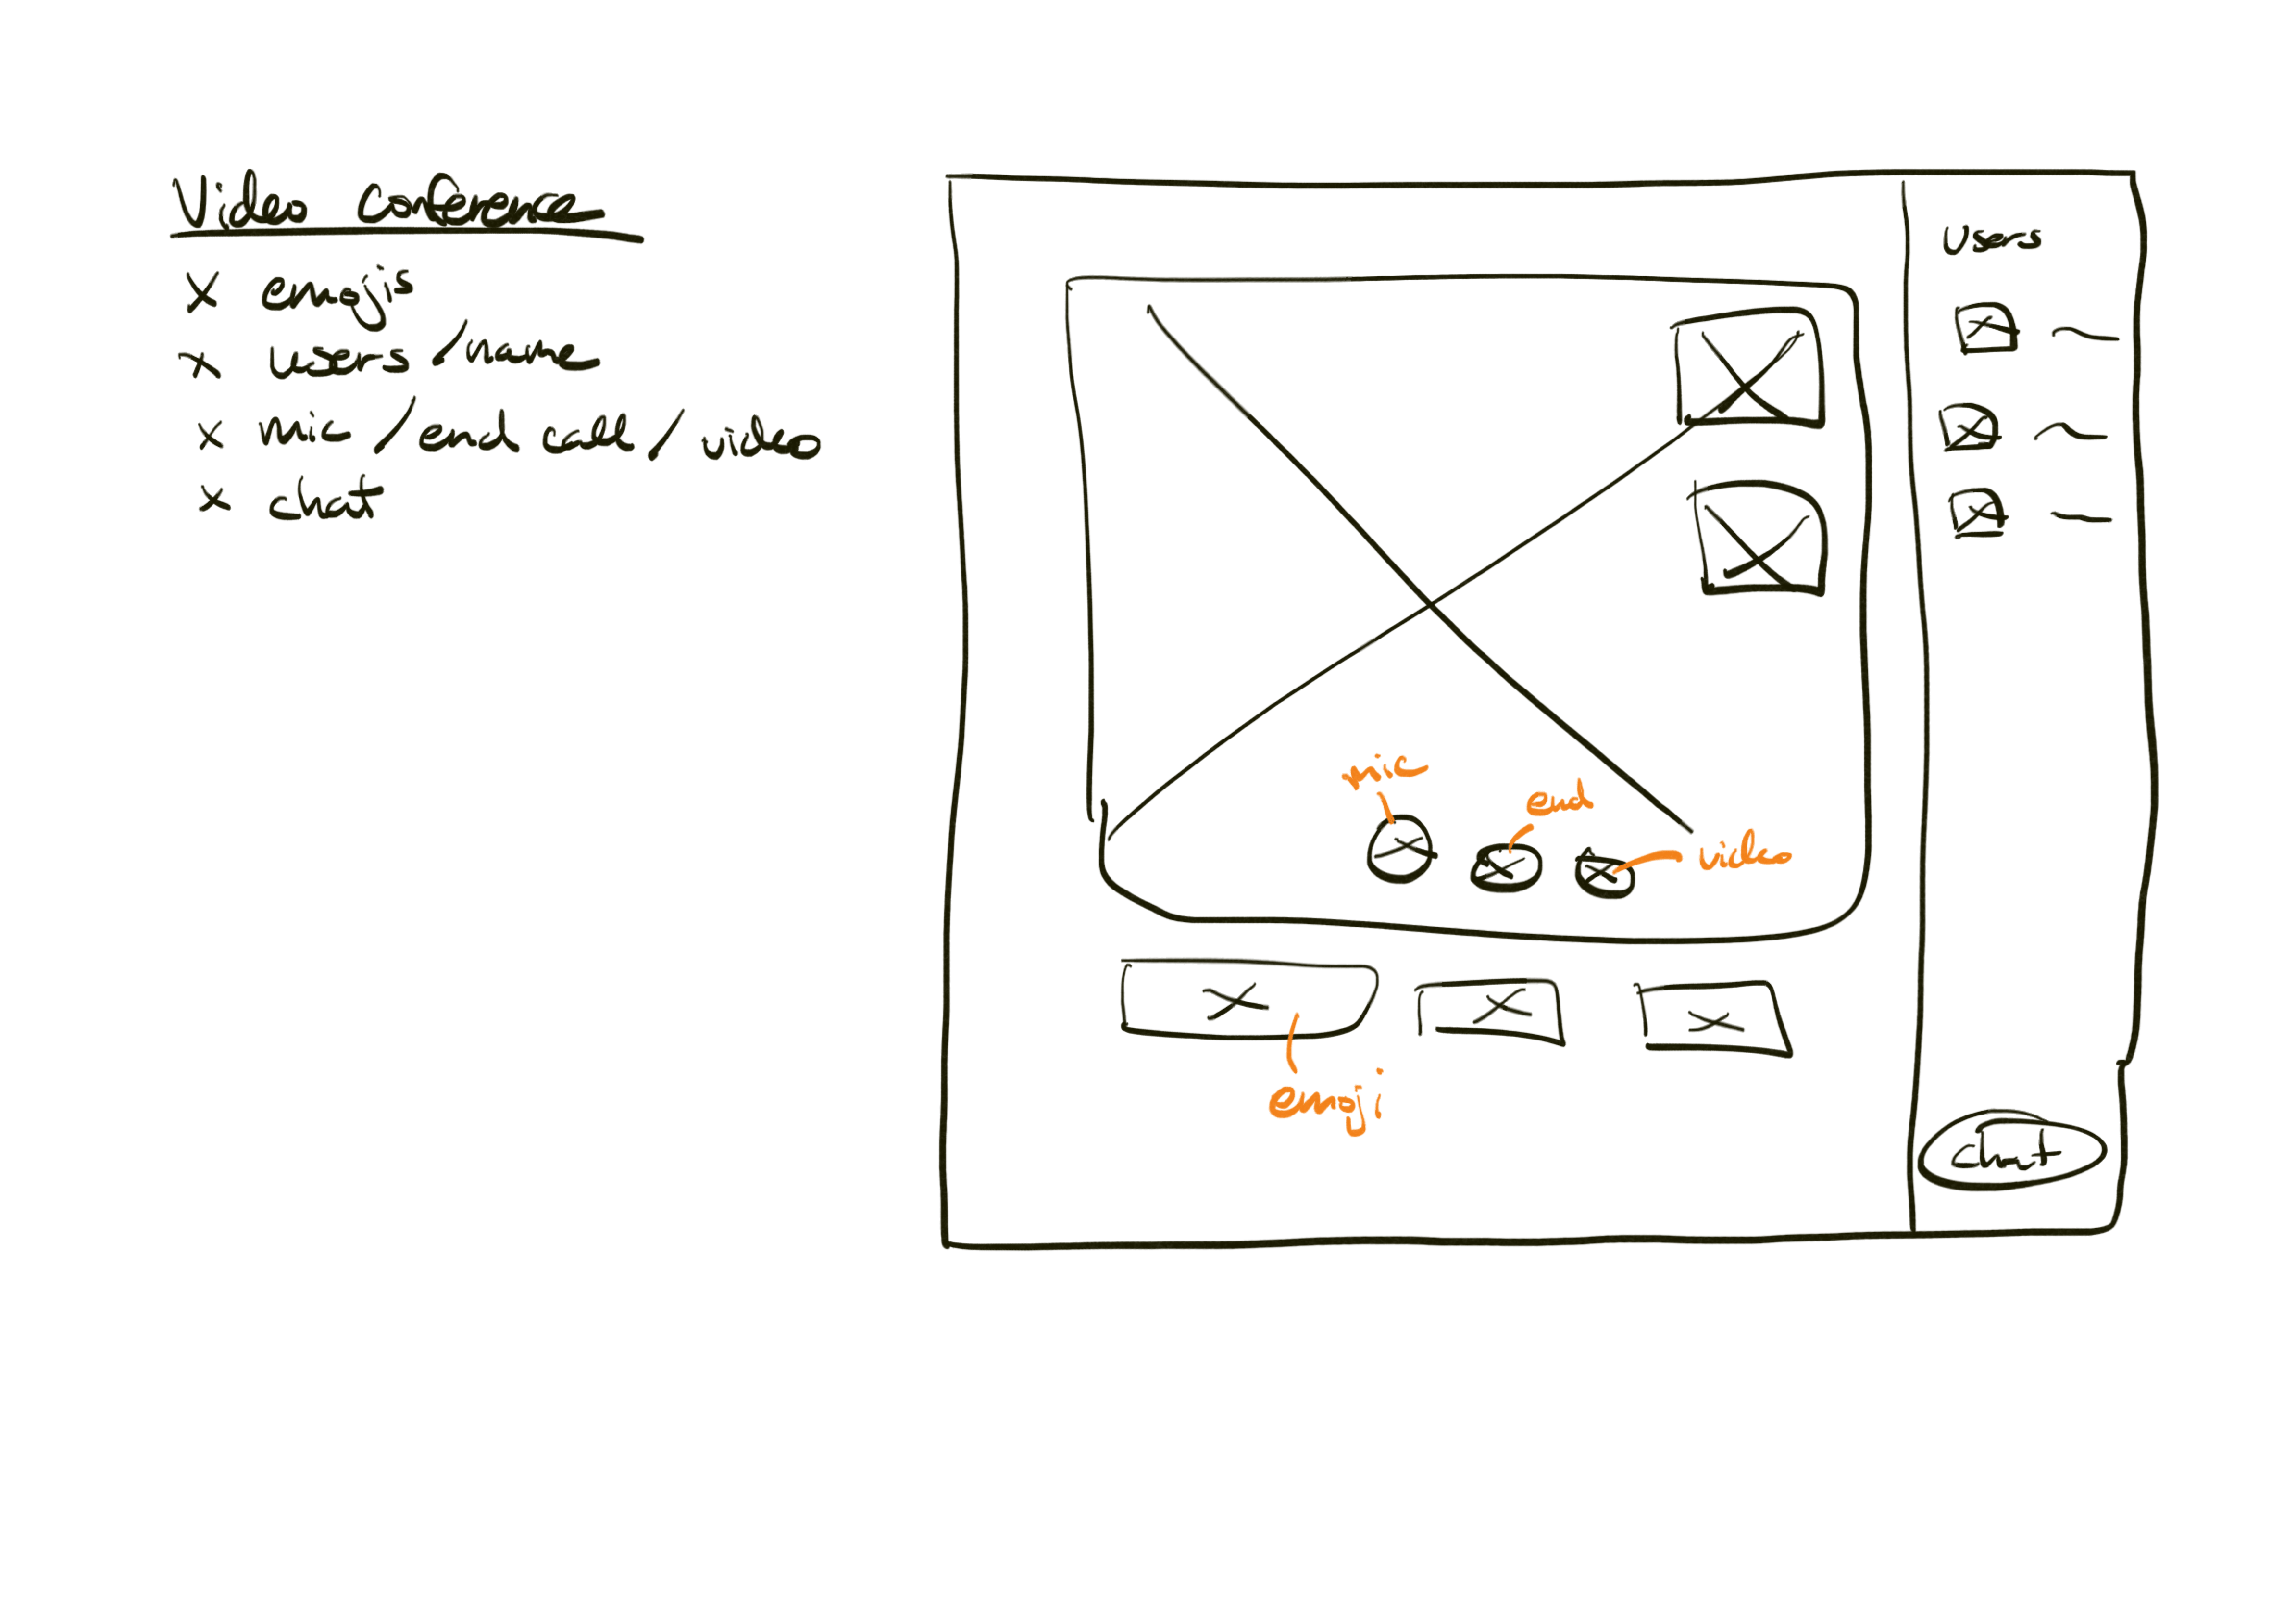 Video Conference
x emojis
x users / name
x mic / end call / video
x chat
Users
mic
end
video
emoji
chat